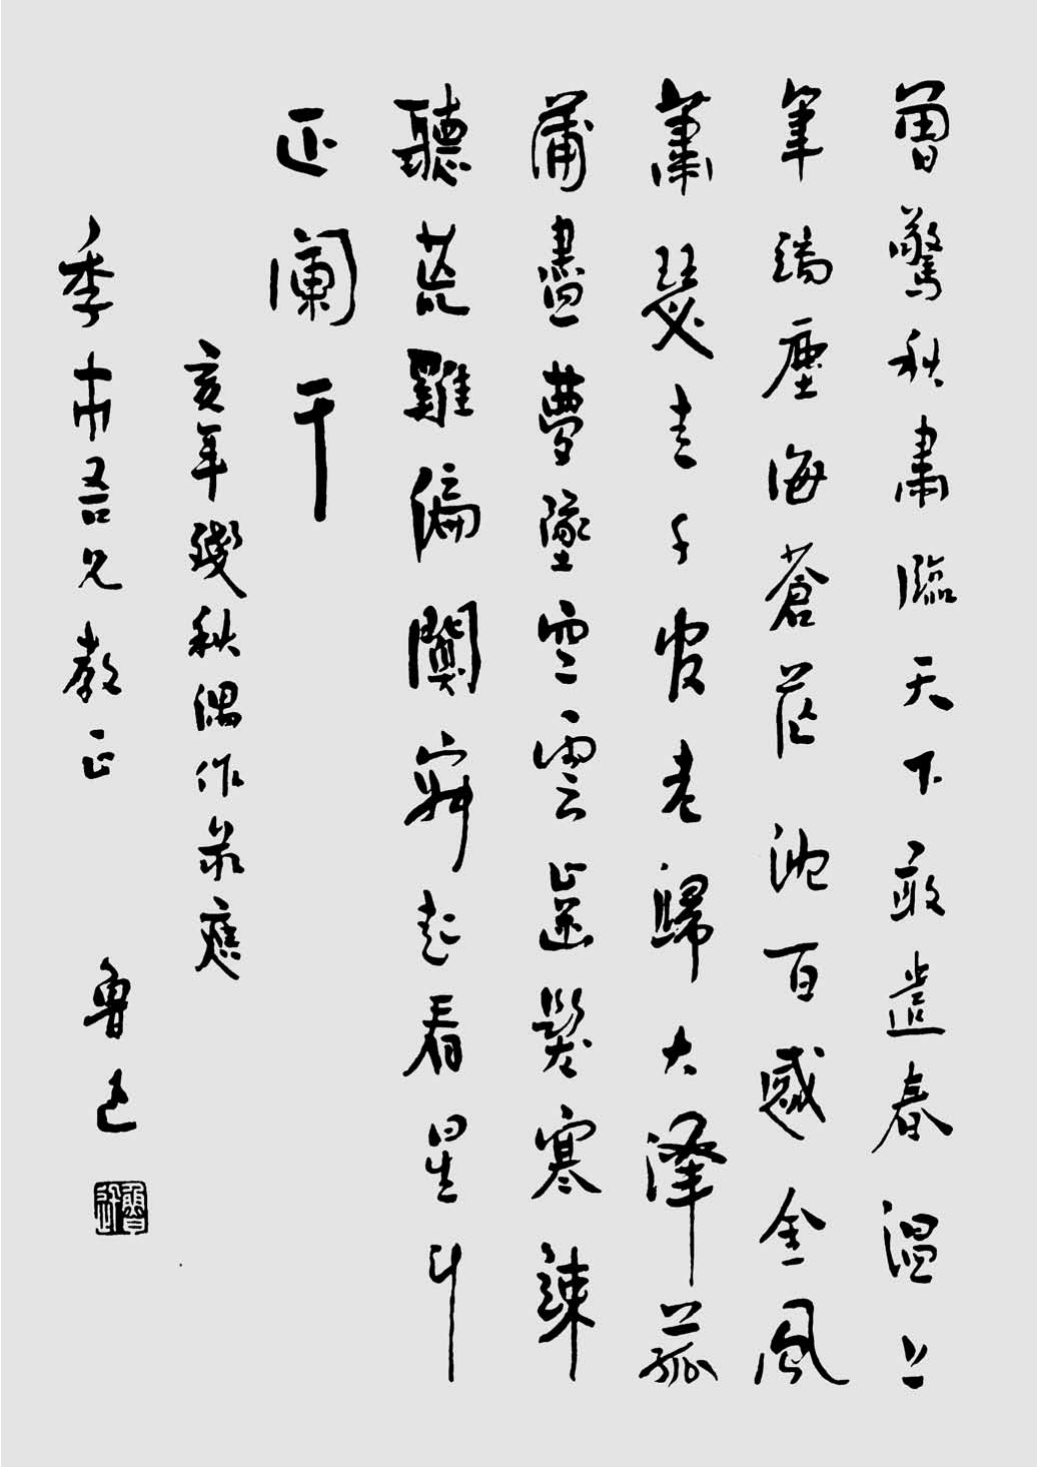 曾驚秋肅臨天下敢遣春溫上
筆端塵海蒼茫沈百感金風
蕭瑟走千官老歸大澤菰
蒲盡夢墜空雲齒髮寒竦
聽荒雞偏闃寂起看星斗
正闌干
亥年殘秋偶作錄應
季巿吾兄教正
魯迅